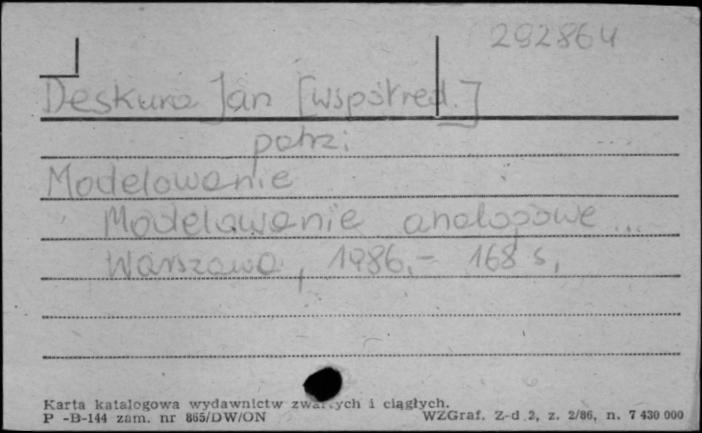 292864
Deskura Jan [współred.]
patrz:
Modelowanie
Modelowanie analogowe ...
Warszawa, 1986.- 168 s.
Karta katalogowa wydawnictw zwartych i ciągłych.
P -B-144 zam. nr 865/DW/ON WZGraf. Z-d 2, z. 2/86, n. 7 430 000